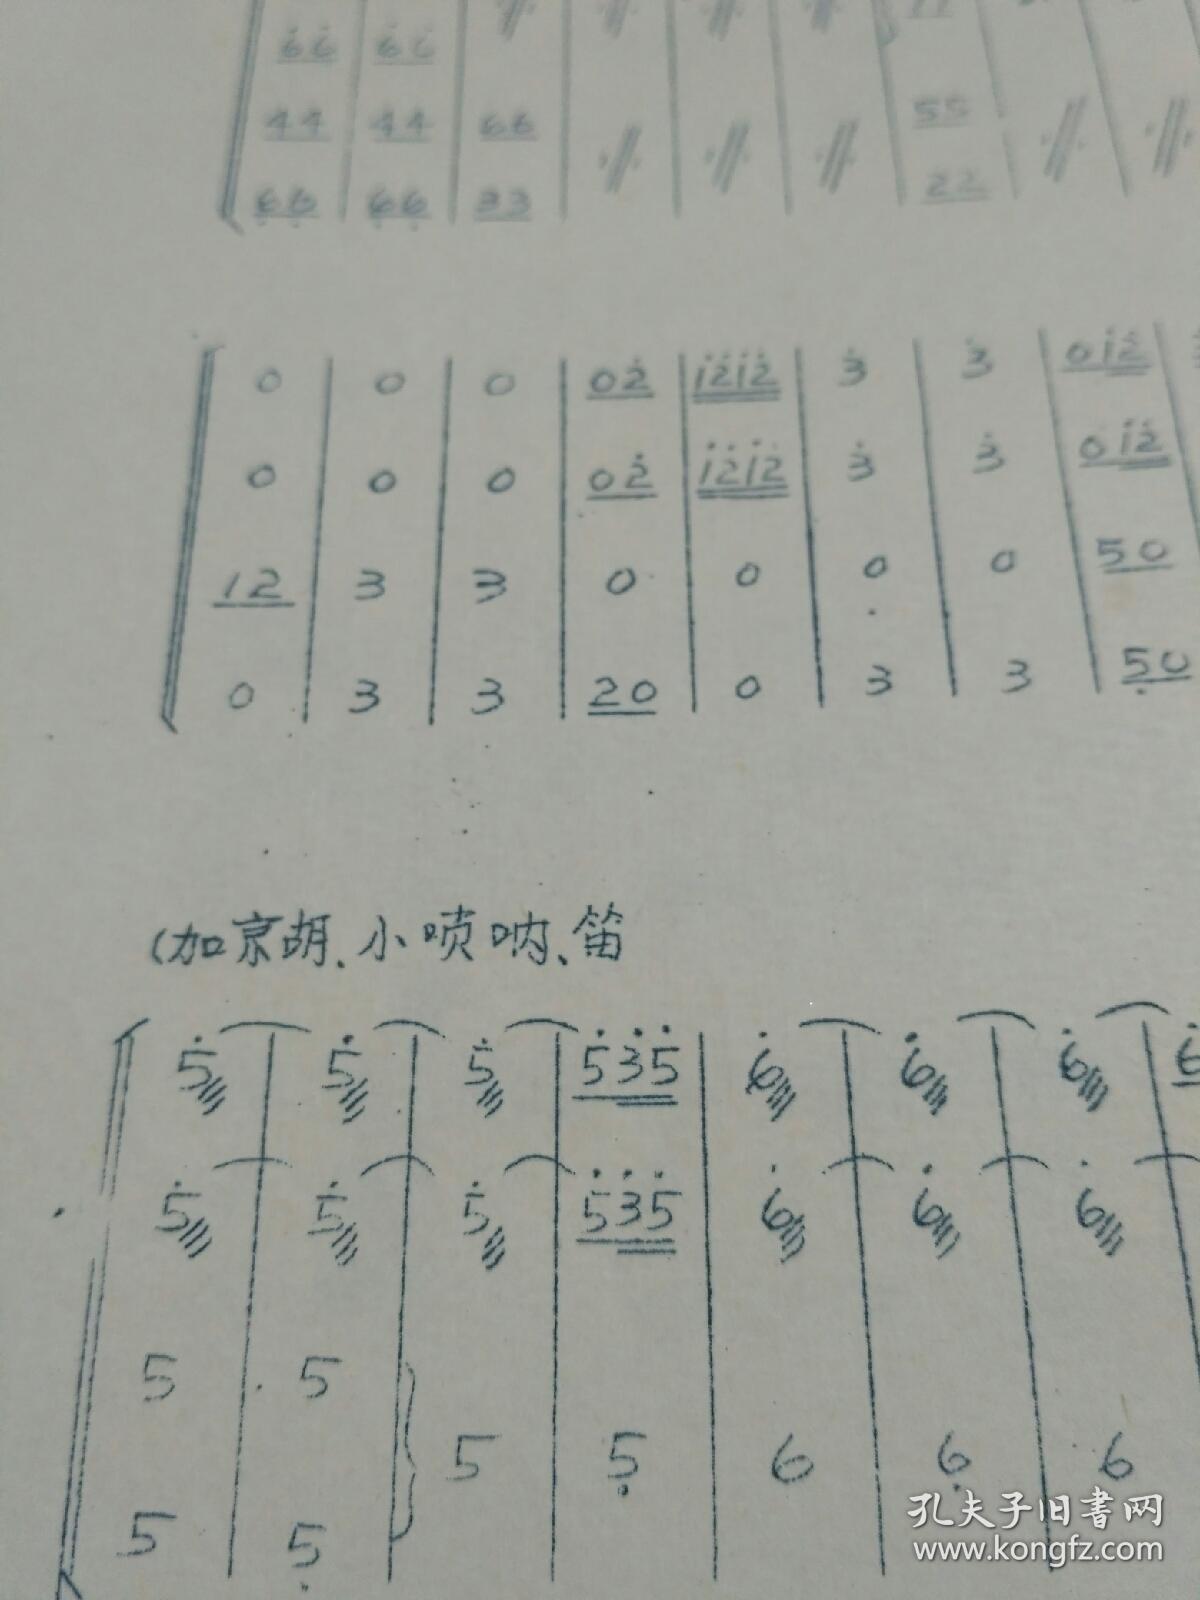 6̇i̇ 6̇i̇
11
44 44 66
55
6̣6̣ 6̣6̣ 33
22
0 0 0 02̇ i̇2̇i̇2̇ 3̇ 3̇ 0i̇2̇
0 0 0 02̇ i̇2̇i̇2̇ 3̇ 3̇ 0i̇2̇
12 3 3 0 0 0 0 50
0 3 3 20 0 3 3 5̣0
(加京胡、小唢呐、笛
5̇ 5̇ 5̇ 5̇3̇5̇ 6̇ 6̇ 6̇ 6̇
5̇ 5̇ 5̇ 5̇3̇5̇ 6̇ 6̇ 6̇
5 5
5 5̣ 6 6̣ 6
5 5̣
孔夫子旧书网
www.kongfz.com